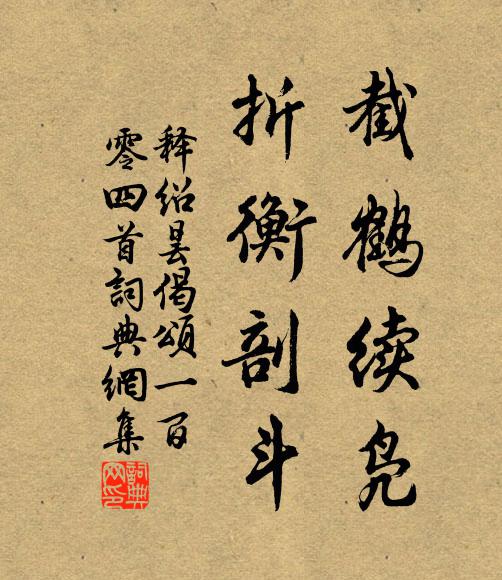 截鹤续凫
折衡剖斗
释绍昙偈頌一百
零四首詞典網集
詞典
网印